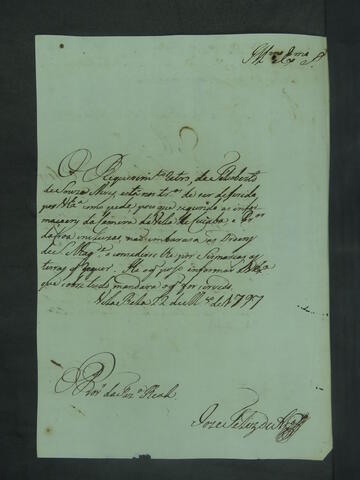 Illmo Exmo Sr.
O Requerimto retro, de Feliberto
de Souza Alvez, está nos tos de ser deferido
por VEa como pede, por que segundo as infor
maçoens da Camera da Villa do Cuiabá e Pror
da Coroa inclusas, não embarasa as Ordens
de S. Magde o conceder-se por Sismarias as
terras q requer. He oq poso informar a VExa
que sobre tudo mandará o q for servido.
Villa Bella 12 de Mço de 1797
O Pror da Fazda Real
Joze Feliz de